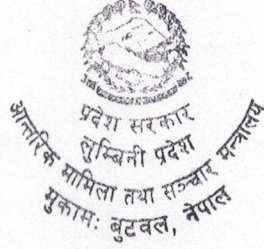 प्रदेश सरकार
लुम्बिनी प्रदेश
आन्तरिक मामिला तथा सञ्चार मन्त्रालय
मुकामः बुटवल, नेपाल